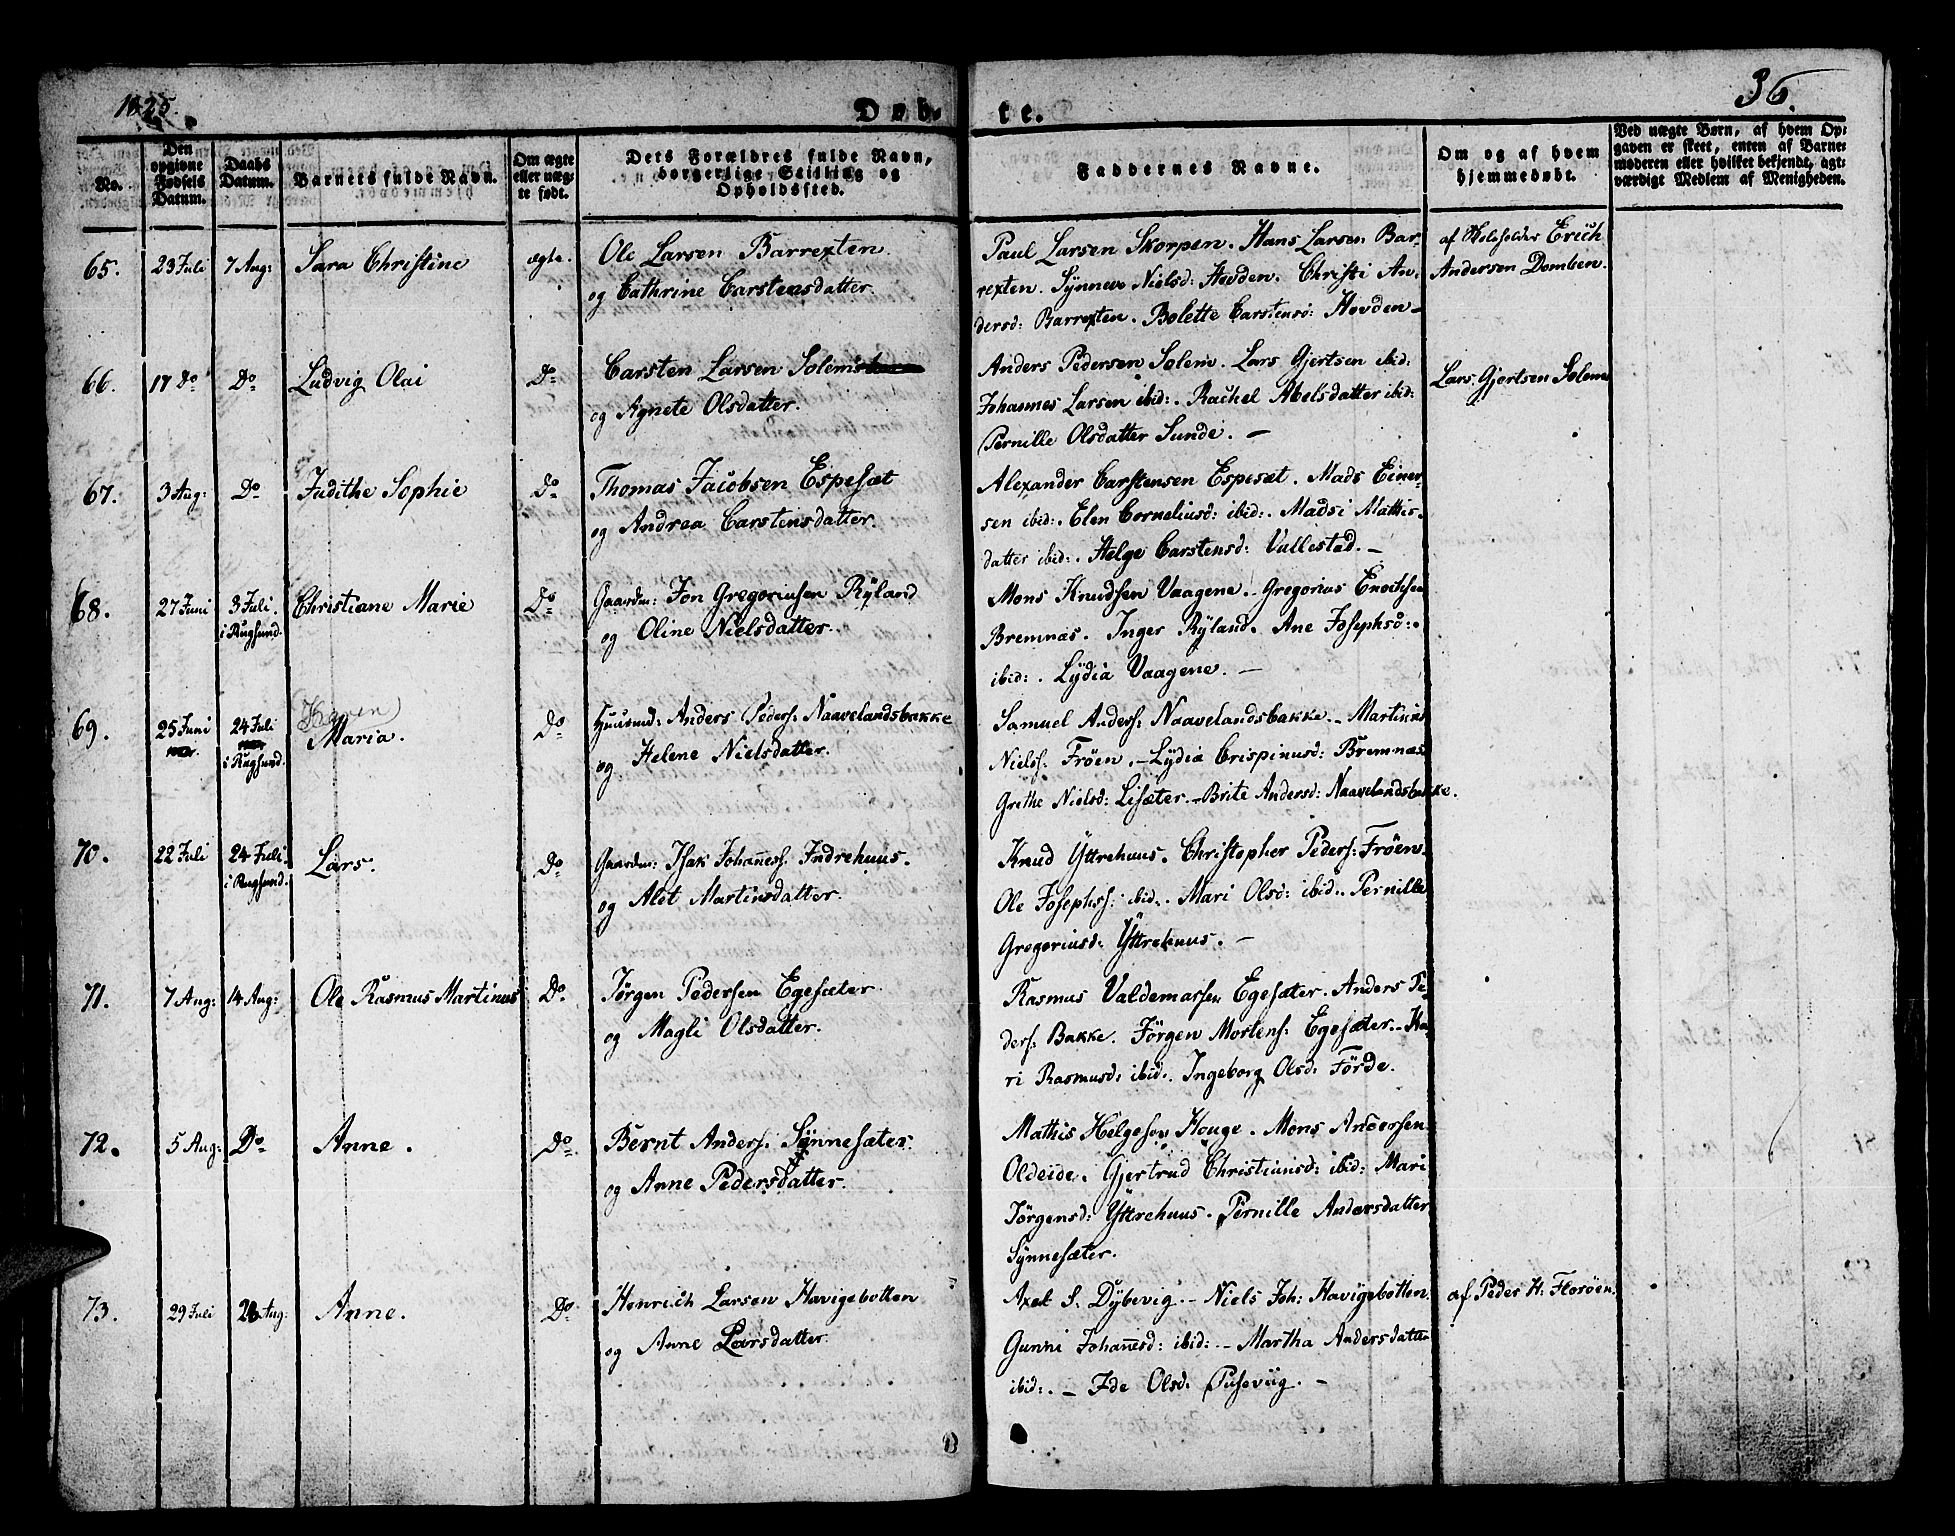 1825.
Døb-
te.
36.
No.
Den opgivne Fødsels Datum.
Daabs Datum.
Barnets fulde Navn.
Om ægte eller uægte født.
Dets Forældres fulde Navn, borgerlige Stilling og Opholdssted.
Faddernes Navne.
Om og af hvem hjemmedøbt.
Ved uægte Børn, af hvem Opgaven er skeet, enten af Barnemoderen eller hvilket bekjendt, agtværdigt Medlem af Menigheden.
65. 23 Juli 7 Aug: Sara Christine ægte. Ole Larsen Barrexten
og Cathrine Carstensdatter.
Paul Larsen Skorpen. Hans Larsen Bar-
rexten. Synneve Nielsd: Hovden. Christi An-
dersd: Barrexten. Bolette Carstensd: Hovden –
Erich
Andersen Domben.
66. 17 Do Do Ludvig Olai Do Carsten Larsen Solem
og Agnete Olsdatter.
Anders Pedersen Solem. Lars Gjertsen ibid:
Johannes Larsen ibid:. Rachel Abelsdatter ibid:
Pernille Olsdatter Sunde. –
Lars Gjertsen Solem
67. 3 Aug: Do Judithe Sophie Do Thomas Jacobsen Espesæt
og Andrea Carstensdatter.
Alexander Carstensen Espesæt. Mads Einer-
sen ibid:. Elen Corneliusd: ibid:. Madsi Mattis-
datter ibid:. Helge Carstensd: Vallestad. –
68. 27 Juni 3 Juli. i Rugsund. Christiane Marie Do Gaardm: Jon Gregoriusen Ryland
og Oline Nielsdatter.
Mons Knudsen Vaagene. – Gregorius Enochsen
Bremnæs. Inger Ryland. Ane Josephsd:.
ibid:. Lydia Vaagene. –
69. 25 Juni 24 Juli i Rugsund. (Karen)
Maria. Do Huusmd: Anders Peders: Naavelandsbakke
og Helene Nielsdatter.
Samuel Anders: Naavelandsbakke. – Martinus
Niels: Frøen. – Lydia Crispinusd: Bremnæs
Grethe Nielsd: Lisæter. – Brite Andersd: Naavelandsbakke.
70. 22 Juli 24 Juli. i Rugsund. Lars. Do Gaardm: Isak Johanness. Indrehuus.
og Alet Martinsdatter.
Knud Yttrehuus. Christopher Peders: Frøen.
Ole Josephs: ibid:. Mari Olsd: ibid:. Pernille
Gregoriusd: Yttrehuus. –
71. 7 Aug: 14 Aug: Ole Rasmus Martinus Do Jørgen Pedersen Egesæter
og Magli Olsdatter.
Rasmus Valdemarsen Egesæter. Anders Pe-
ders: Bakke. Jørgen Mortens: Egesæter. – Ka-
ri Rasmusd: ibid:. Ingeborg Olsd: Førde.
72. 5 Aug: Do Anne. Do Bernt Anders: Synnesæter
og Anne Pedersdatter.
Mathis Helgesen Houge. Mons Andersen
Oldeide. Gjertrud Christiansd: ibid: Mari
Jørgensd: Yttrehuus. Pernille Andersdatter
Synnesæter.
73. 29 Juli Aug. Anne. Do Henrich Larsen Havigebotten
og Anne Larsdatter.
Axel S. Dybevig. – Niels Joh: Havigebotten
Gunni Johanesd: ibid: – Martha Andersdatter
ibid:. – Ide Olsd. –
af Peder H: Florøen.